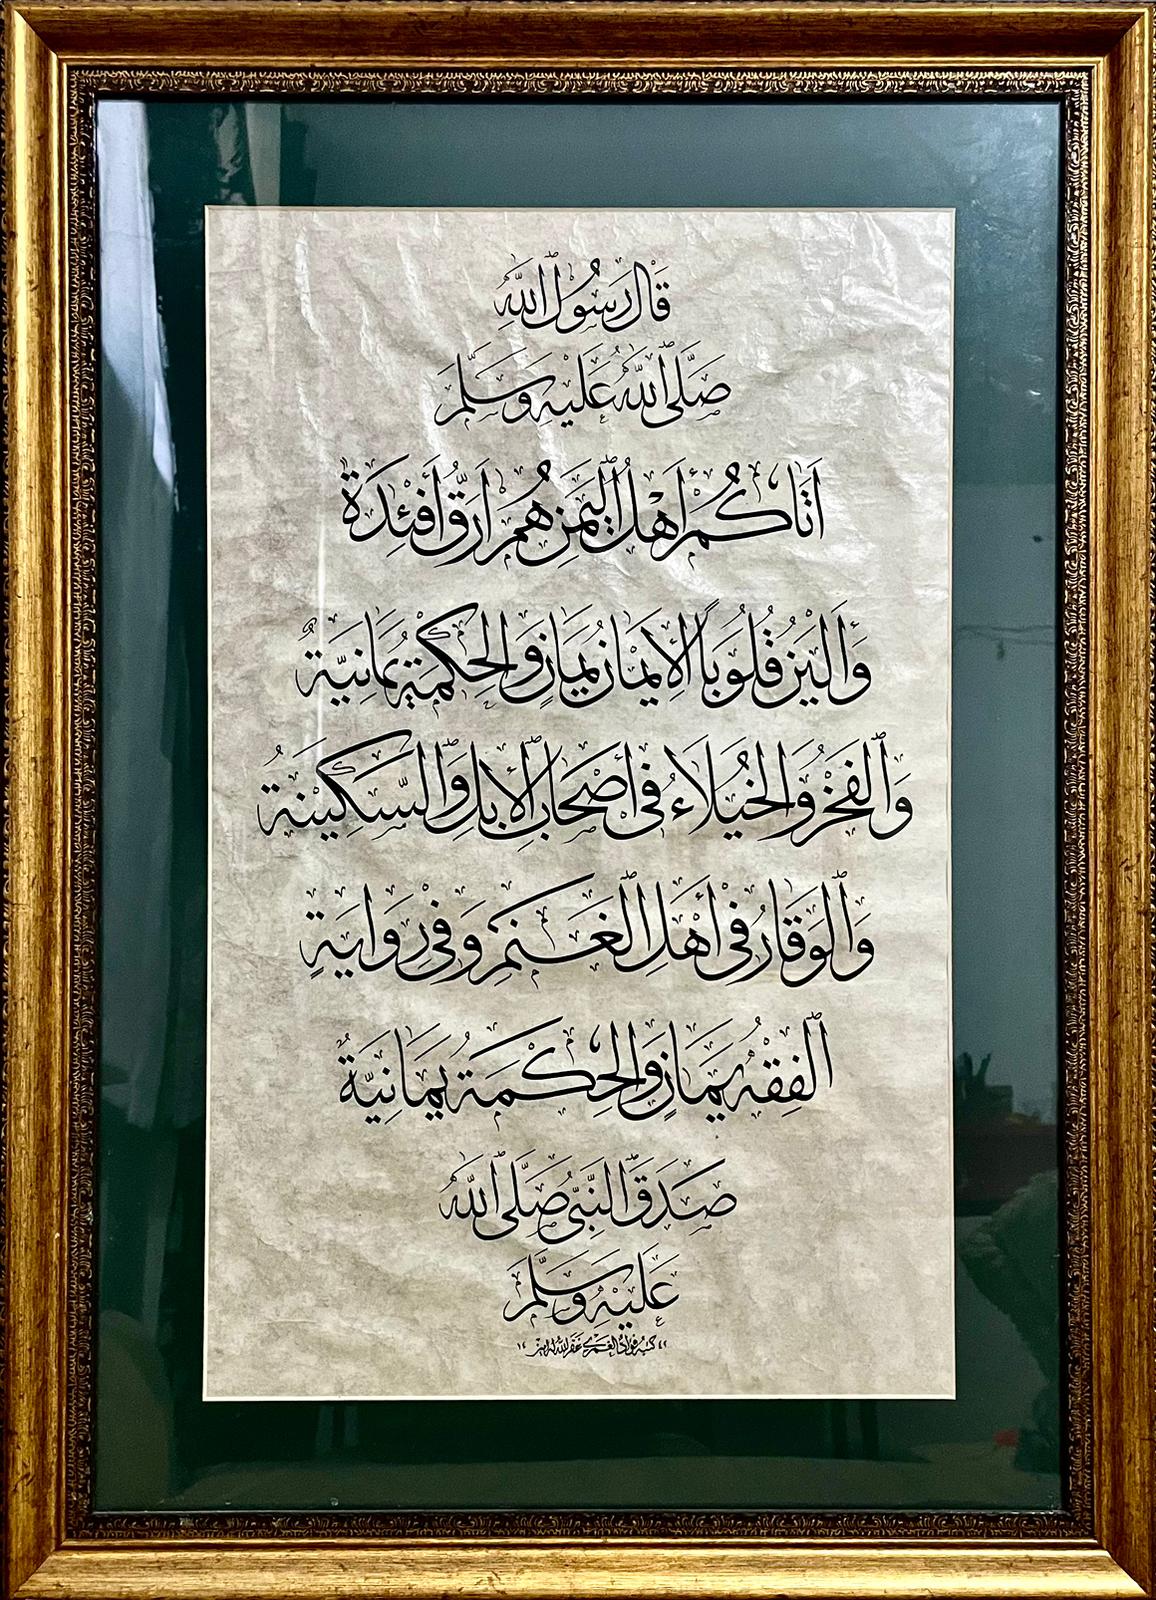 قَالَ رَسُولُ ٱللَّهِ
صَلَّى ٱللَّهُ عَلَيْهِ وَسَلَّمَ
أَتَاكُمْ أَهْلُ ٱلْيَمَنِ هُمْ أَرَقُّ أَفْئِدَةً
وَأَلْيَنُ قُلُوبًا ٱلْإِيمَانُ يَمَانٍ وَٱلْحِكْمَةُ يَمَانِيَّةٌ
وَٱلْفَخْرُ وَٱلْخُيَلَاءُ فِى أَصْحَابِ ٱلْإِبِلِ وَٱلسَّكِينَةُ
وَٱلْوَقَارُ فِى أَهْلِ ٱلْغَنَمِ وَفِى رِوَايَةٍ
ٱلْفِقْهُ يَمَانٍ وَٱلْحِكْمَةُ يَمَانِيَّةٌ
صَدَقَ ٱلنَّبِىُّ صَلَّى ٱللَّهُ
عَلَيْهِ وَسَلَّمَ
٤٢ كتبه فؤاد العمري غفر الله له ١٤